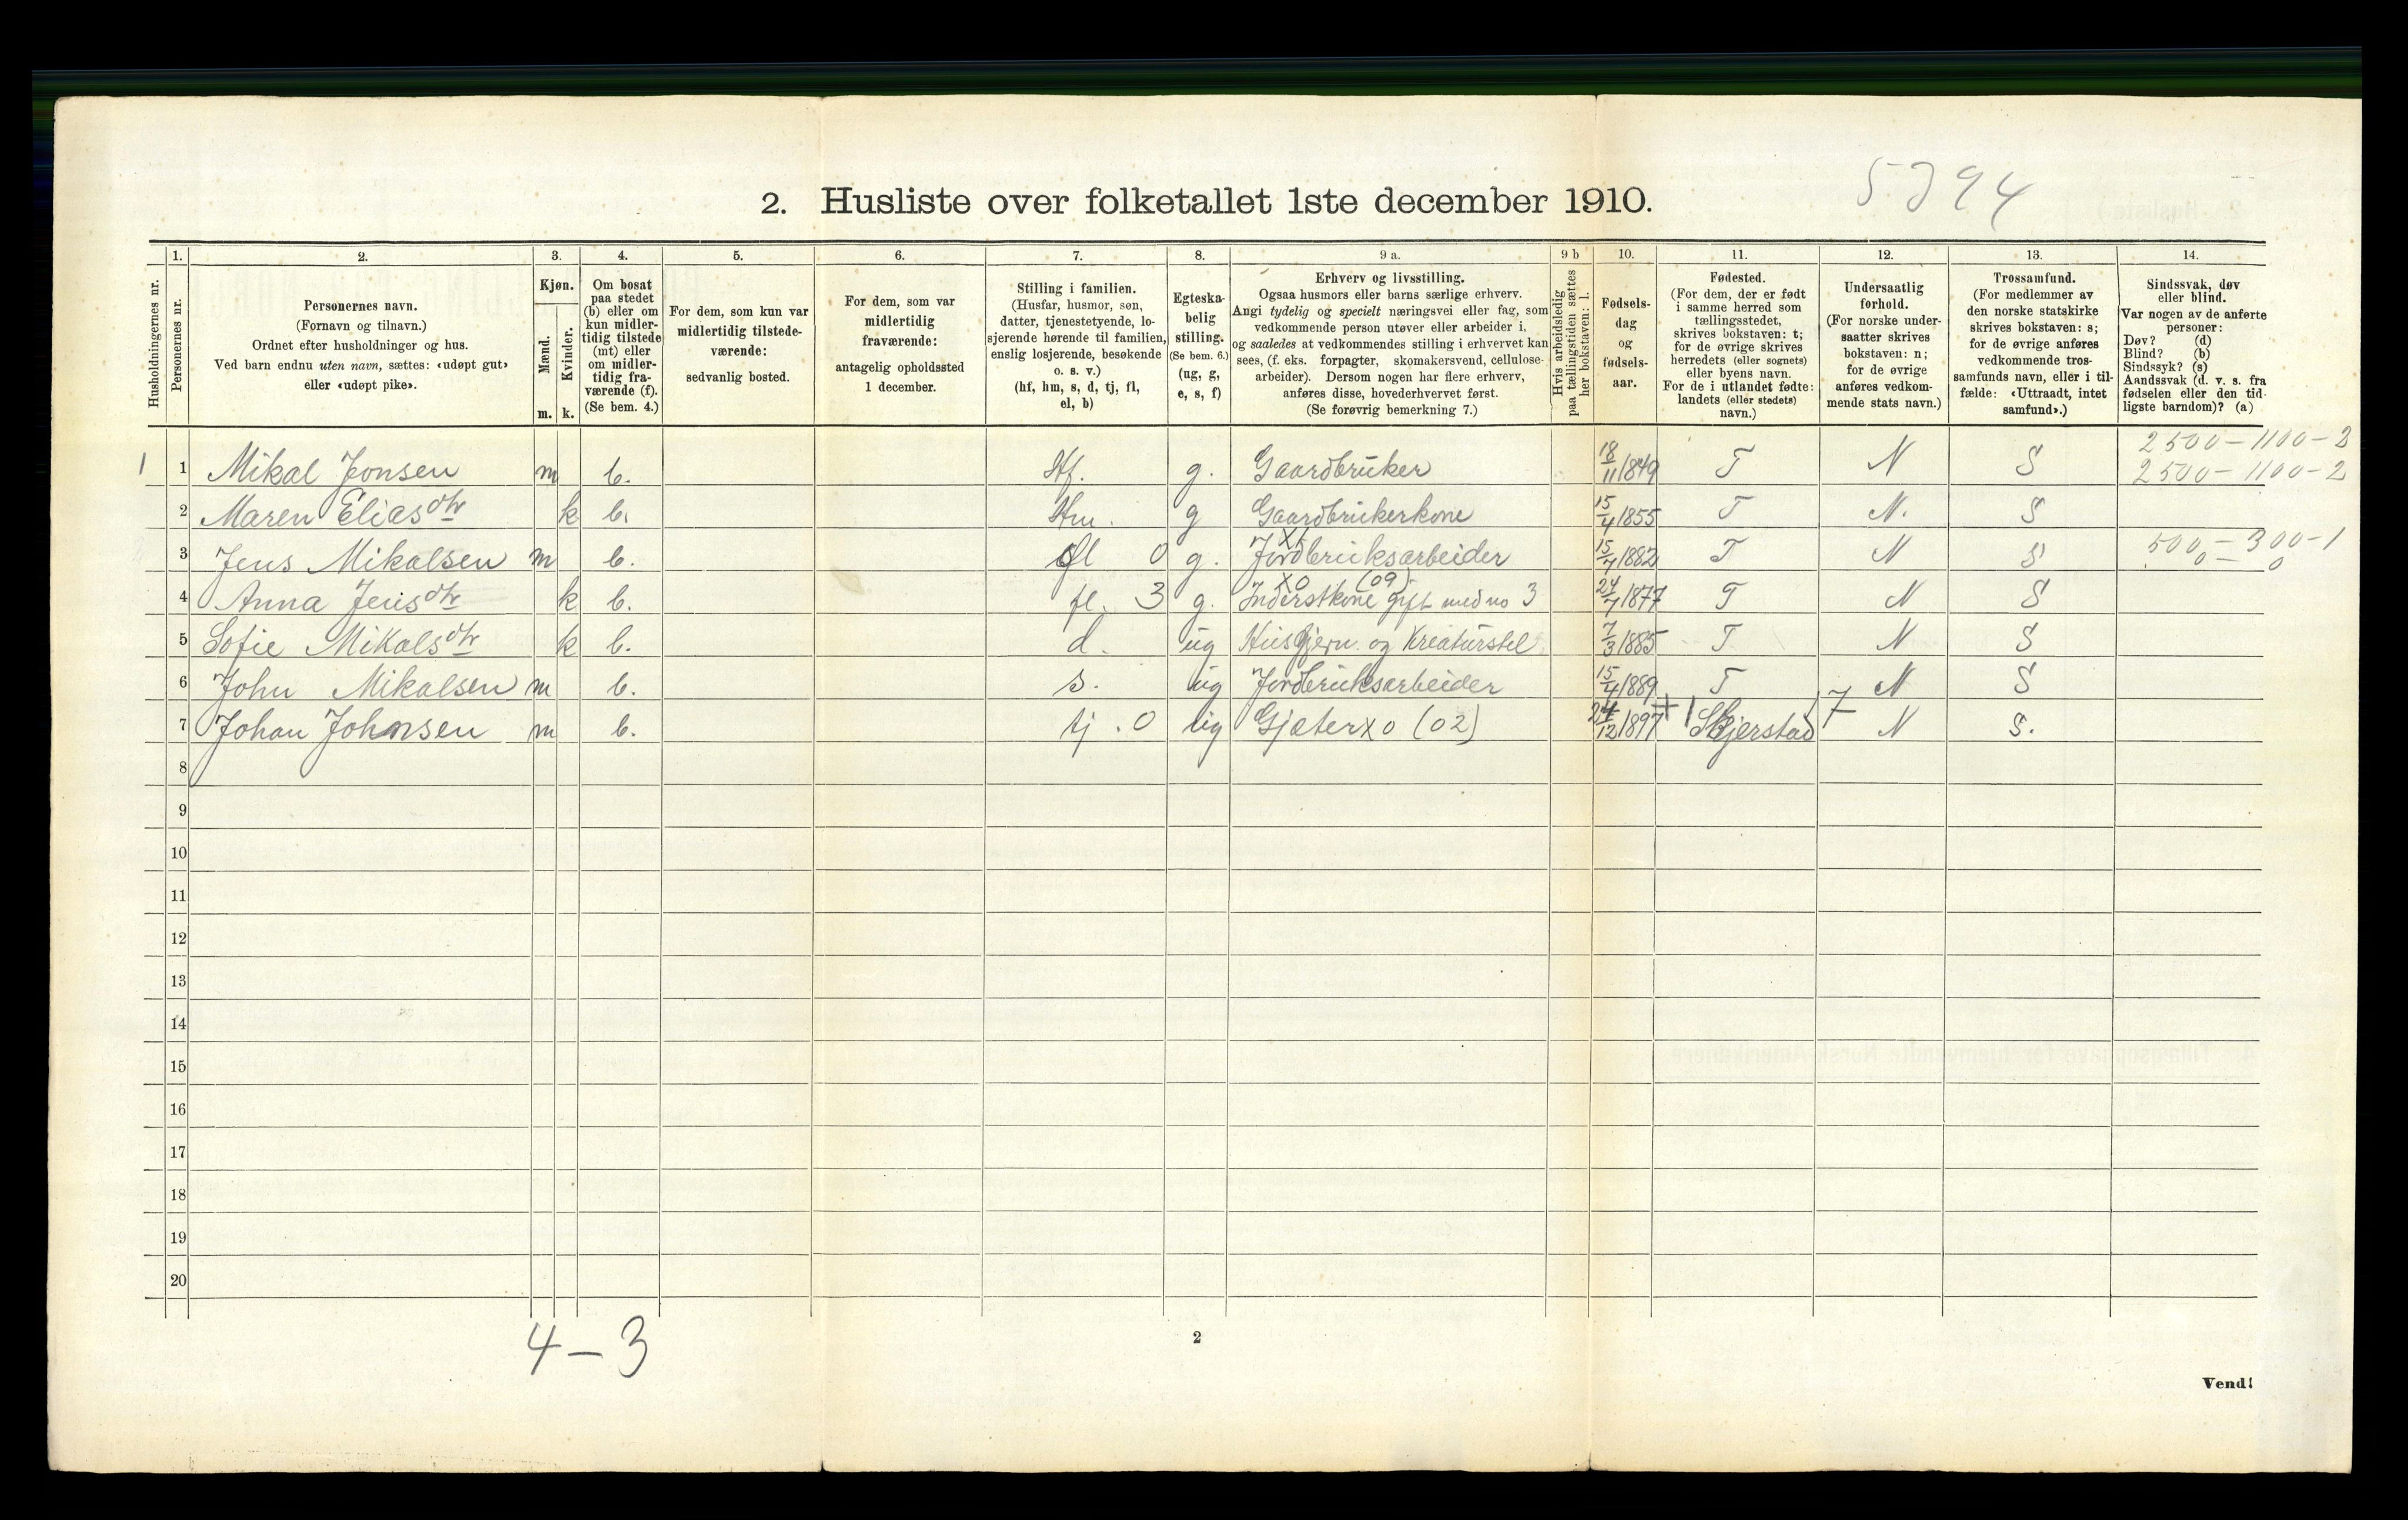 5394
2. Husliste over folketallet 1ste december 1910.
Husholdningernes nr.
1. Personernes nr.
2. Personernes navn. (Fornavn og tilnavn.) Ordnet efter husholdninger og hus. Ved barn endnu uten navn, sættes: «udøpt gut» eller «udøpt pike».
3. Kjøn. Mænd. m. Kvinder. k.
4. Om bosat paa stedet (b) eller om kun midlertidig tilstede (mt) eller om midlertidig fraværende (f). (Se bem. 4.)
5. For dem, som kun var midlertidig tilstedeværende: sedvanlig bosted.
6. For dem, som var midlertidig fraværende: antagelig opholdssted 1 december.
7. Stilling i familien. (Husfar, husmor, søn, datter, tjenestetyende, losjerende hørende til familien, enslig losjerende, besøkende o. s. v.) (hf, hm, s, d, tj, fl, el, b)
8. Egteskabelig stilling. (Se bem. 6.) (ug, g, e, s, f)
9 a. Erhverv og livsstilling. Ogsaa husmors eller barns særlige erhverv. Angi tydelig og specielt næringsvei eller fag, som vedkommende person utøver eller arbeider i, og saaledes at vedkommendes stilling i erhvervet kan sees, (f. eks. forpagter, skomakersvend, cellulosearbeider). Dersom nogen har flere erhverv, anføres disse, hovederhvervet først. (Se forøvrig bemerkning 7.)
9 b Hvis arbeidsledig paa tællingstiden sættes her bokstaven: l.
10. Fødselsdag og fødselsaar.
11. Fødested. (For dem, der er født i samme herred som tællingsstedet, skrives bokstaven: t; for de øvrige skrives herredets (eller sognets) eller byens navn. For de i utlandet fødte: landets (eller stedets) navn.)
12. Undersaatlig forhold. (For norske undersaatter skrives bokstaven: n; for de øvrige anføres vedkommende stats navn.)
13. Trossamfund. (For medlemmer av den norske statskirke skrives bokstaven: s; for de øvrige anføres vedkommende trossamfunds navn, eller i tilfælde: «Uttraadt, intet samfund».)
14. Sindssvak, døv eller blind. Var nogen av de anførte personer: Døv? (d) Blind? (b) Sindssyk? (s) Aandssvak (d. v. s. fra fødselen eller den tidligste barndom)? (a)
2500-1100-2
1 1 Mikal Jonsen m b. Hf. g. Gaardbruker 18/11 1849 T N S 2500-1100-2
2 Maren Eliasdtr k b. Hm. g Gaardbrukerkone 15/4 1855 T N. S
3 Jens Mikalsen m b. fl 0 g. Jordbruksarbeider X1 15/7 1882 T N S 500-300-1 0-0
4 Anna Jensdtr k b. fl. 3 g. Inderstkone gift med no 3 X0 (09) 24/7 1877 T N S
5 Sofie Mikalsdtr k b. d. ug Husgjern. og Kreaturstel 7/3 1885 T N S
6 John Mikalsen m b. s. ug Jordbruksarbeider 15/4 1889 T N S
7 Johan Johnsen m b. tj. 0 ug Gjæter X0 (02) 24/12 1897 + 1 Skjerstad 7 N S.
8
9
10
11
12
13
14
15
16
17
18
19
20
4-3
2
Vend!